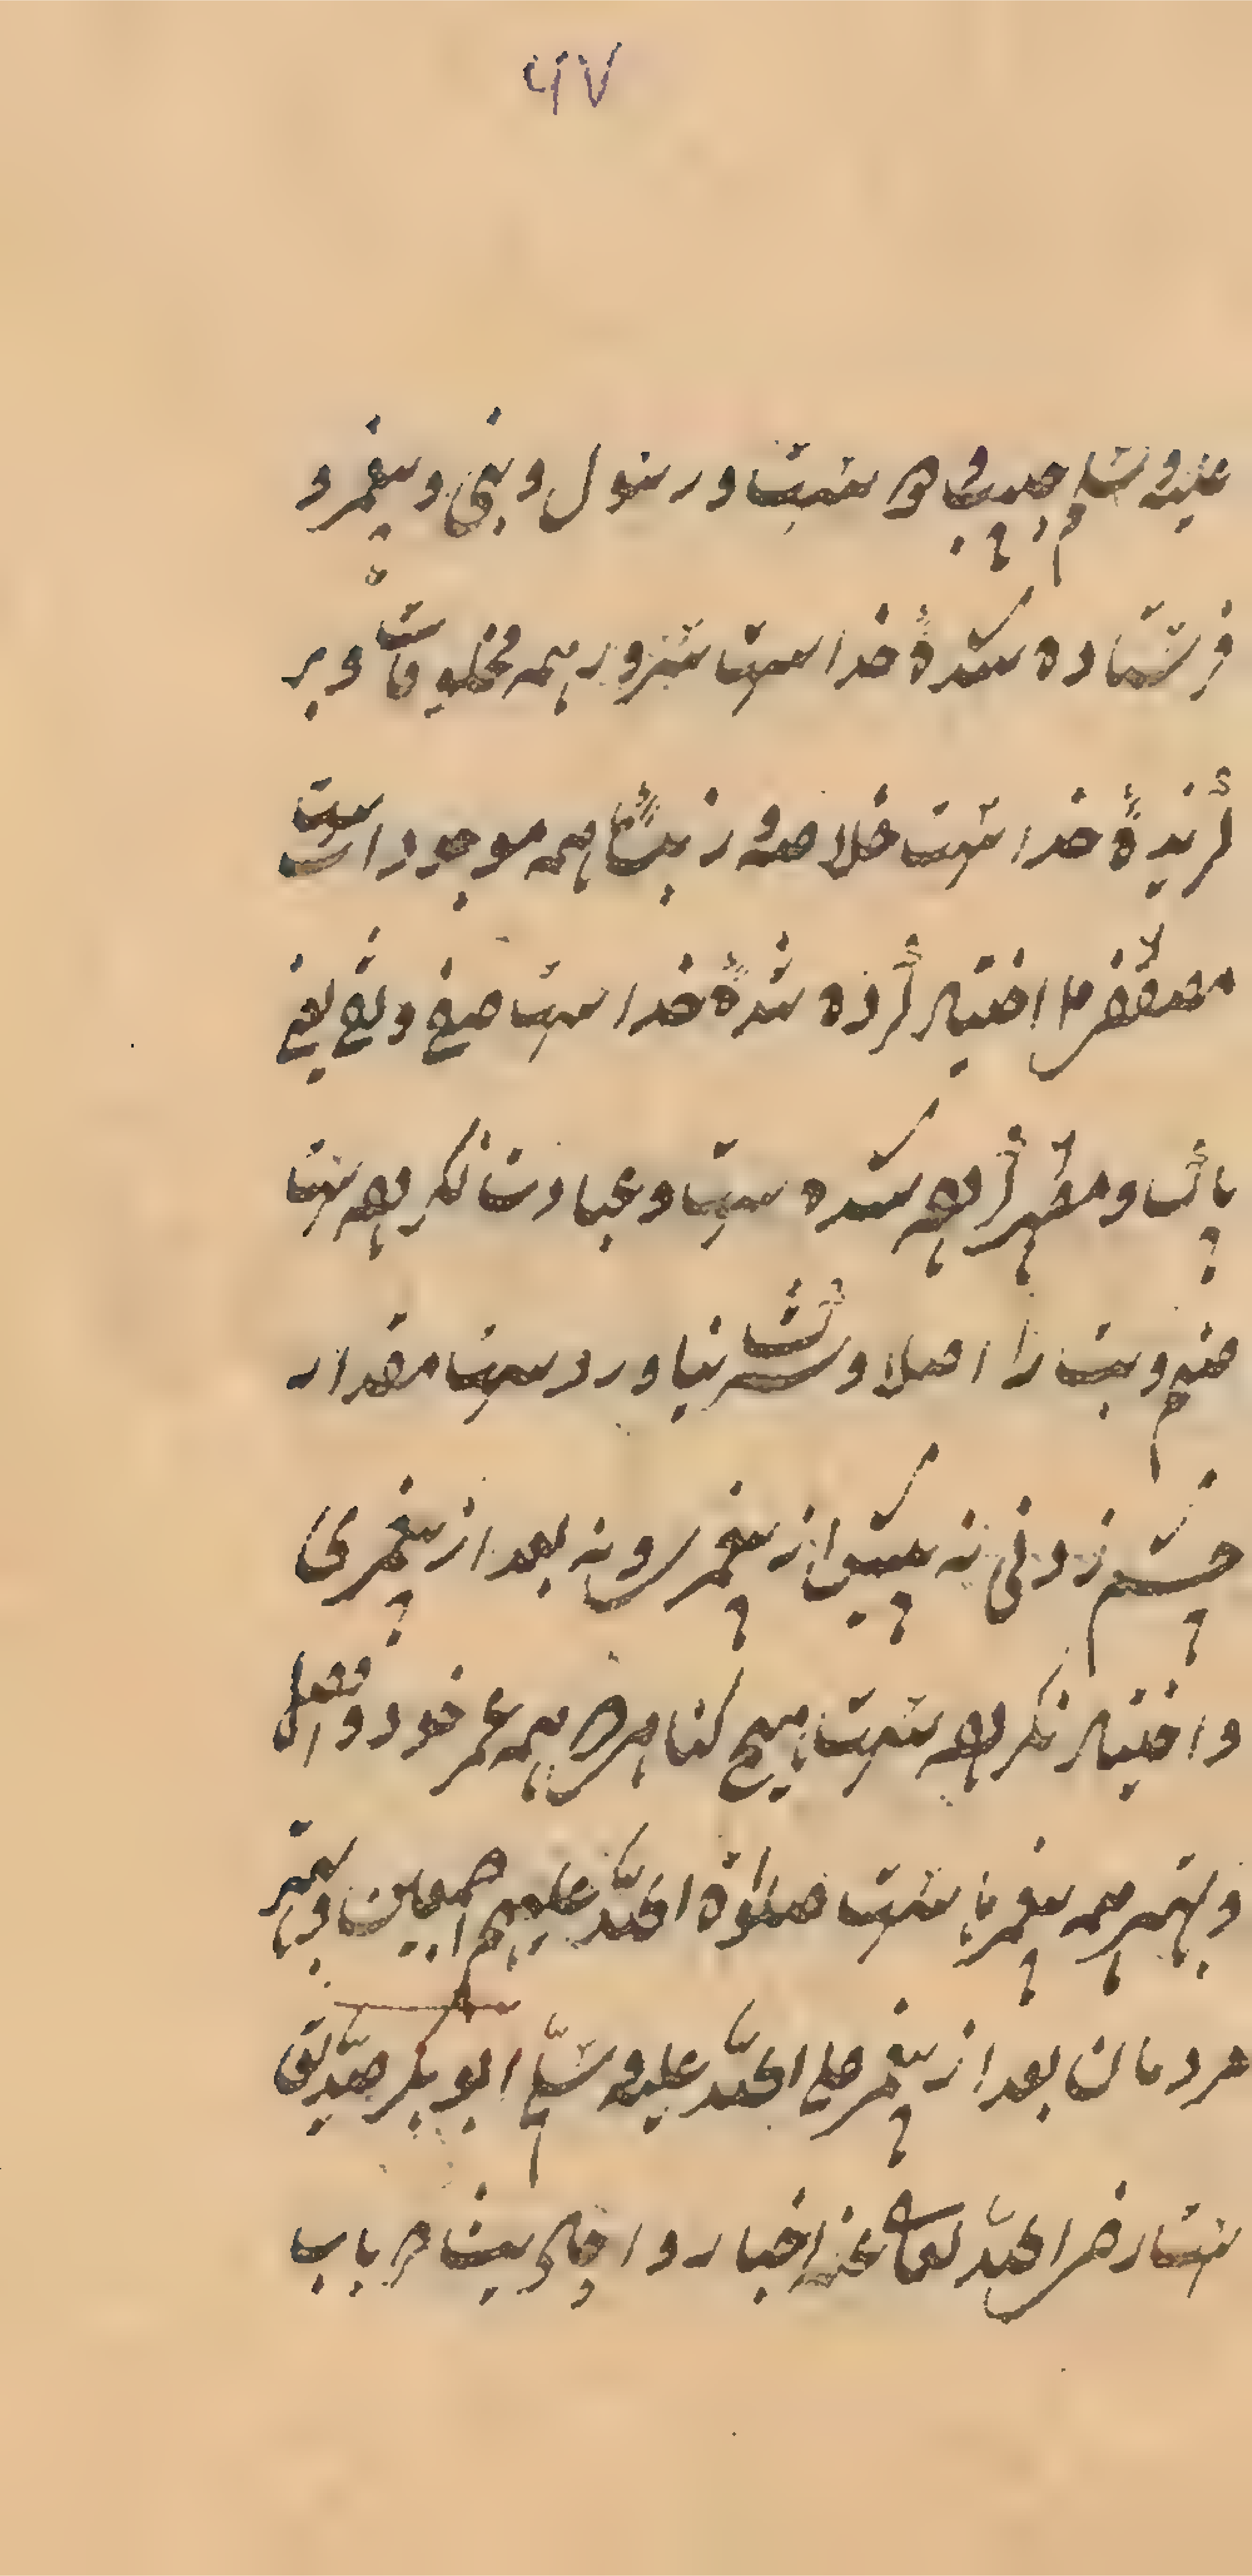 ۴۷
علیه و سلم حبیب و ست و رسول و نبی و پیغمبر و
فرستاده شدهٔ خداست سرور همه مخلوقات و بر
گزیدهٔ خداست خلاصه و زبدهٔ همه موجودات ست
مصطفی اختیار کرده شدهٔ خداست صفی و نقی یعنی
پاک و مطهر کرده شده ست و عبادت نکرده ست
صنم و بت را اصلا و شک نیاورد ست مقدار
چشم زدنی نه پیش از پیغمبری و نه بعد از پیغمبری
و اختیار نکرده ست هیچ گناهی همه عمر خود و افضل
و بهتر همه پیغمبران ست صلوٰة اللّه علیهم اجمعین و بهتر
مردمان بعد از پیغمبر صلی اللّه علیه و سلّم ابو بکر صدّیق
ست رضی اللّه تعالی عنه اخبار و احادیث در باب